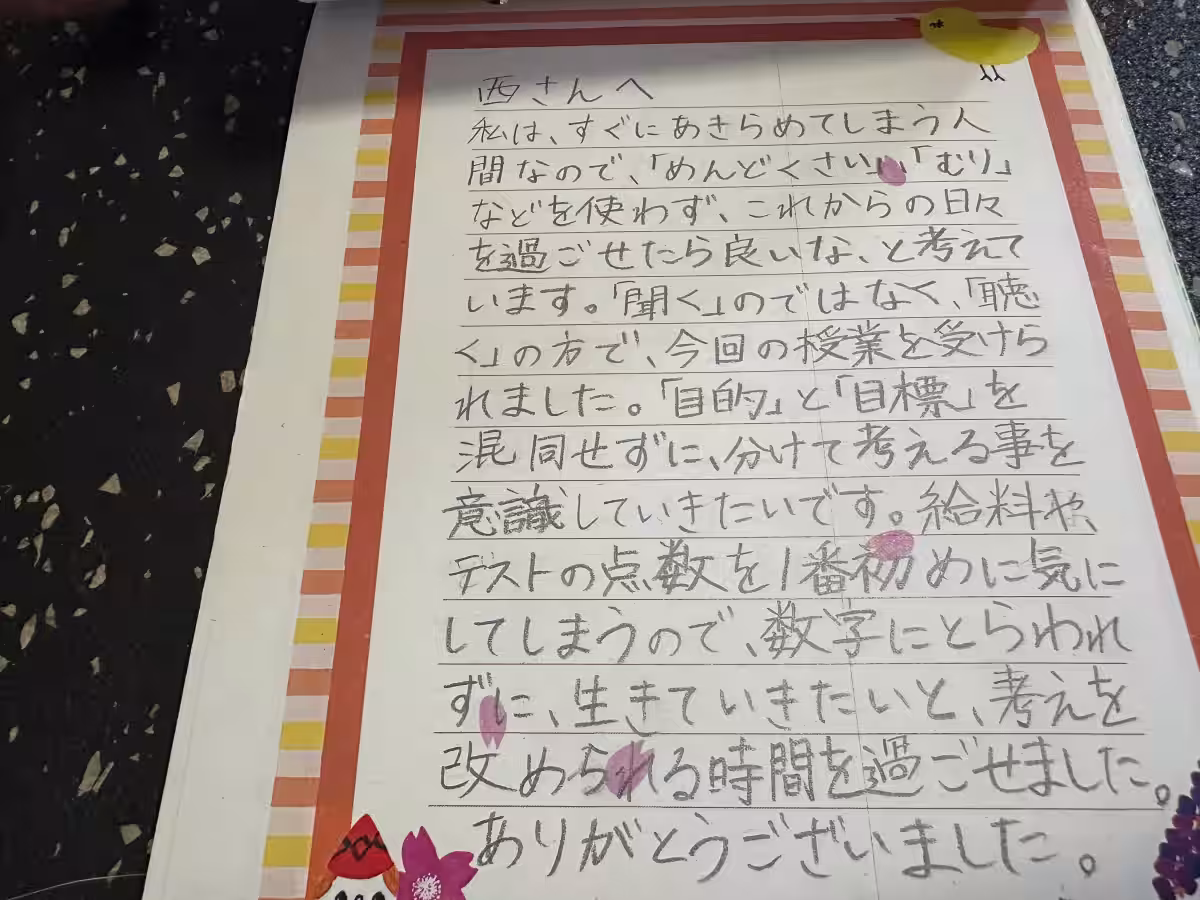 西さんへ
私は、すぐにあきらめてしまう人
間なので、「めんどくさい」、「むり」
などを使わず、これからの日々
を過ごせたら良いな、と考えて
います。「聞く」のではなく、「聴
く」の方で、今回の授業を受けら
れました。「目的」と「目標」を
混同せずに、分けて考える事を
意識していきたいです。給料や、
テストの点数を1番初めに気に
してしまうので、数字にとらわれ
ずに、生きていきたいと、考えを
改められる時間を過ごせました。
ありがとうございました。